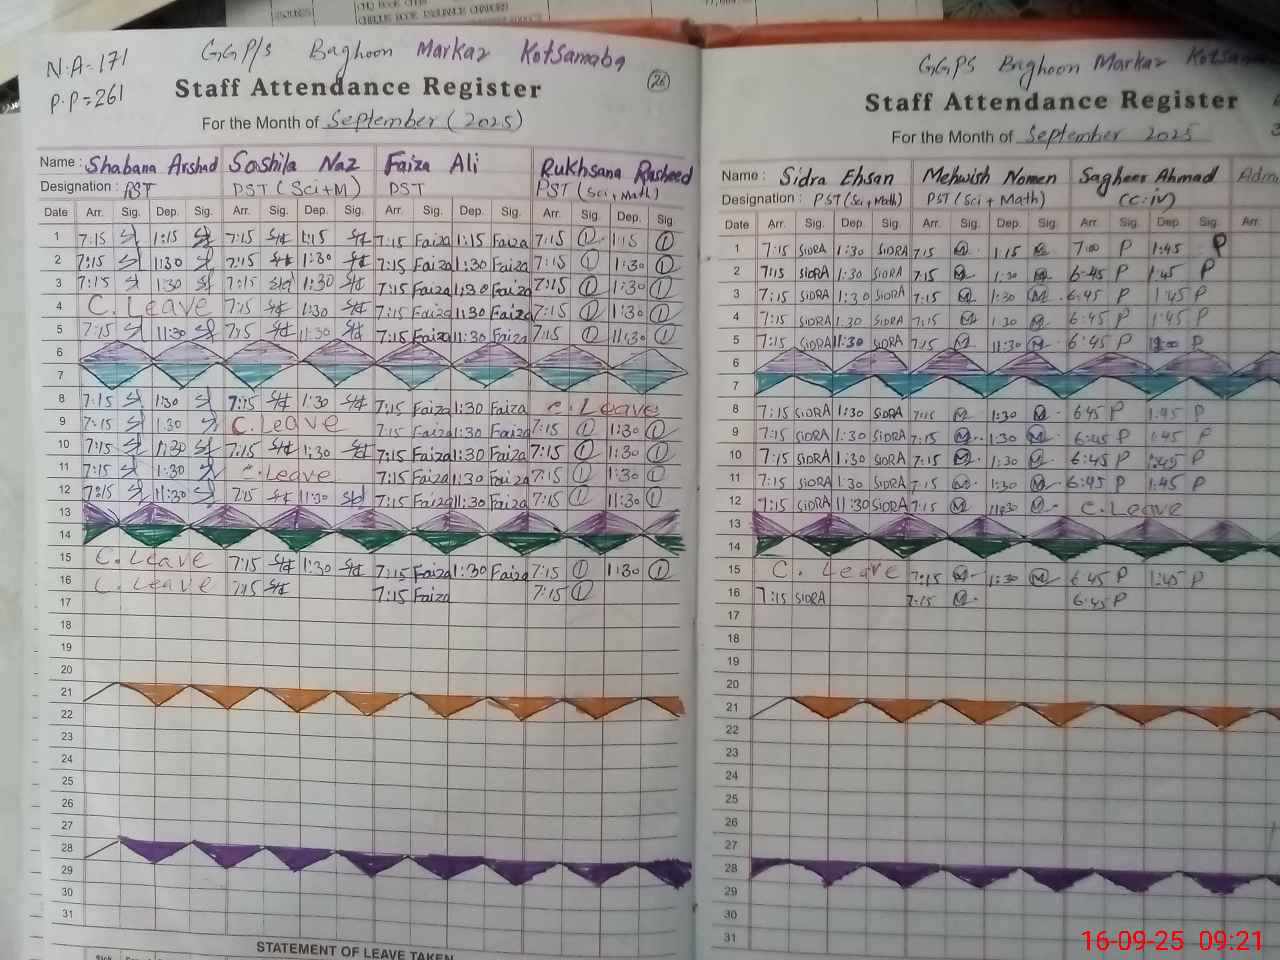 CHQ BOOK CHGS
CHEQUE BOOK ISSUANCE CHARGES
N.A-171
P.P=261
G.G.P/s Baghoon Markaz Kotsamaba
26
Staff Attendance Register
For the Month of September (2025)
Name : Shabana Arshad Soshila Naz Faiza Ali Rukhsana Rasheed
Designation : PST PST (Sci+M) PST PST (Sci, Math)
Date Arr. Sig. Dep. Sig. Arr. Sig. Dep. Sig. Arr. Sig. Dep. Sig. Arr. Sig. Dep. Sig.
1 7:15 1:15 7:15 1:15 7:15 Faiza 1:15 Faiza 7:15 1:15
2 7:15 1:30 7:15 1:30 7:15 Faiza 1:30 Faiza 7:15 1:30
3 7:15 1:30 7:15 1:30 7:15 Faiza 1:30 Faiza 7:15 1:30
4 C. Leave 7:15 1:30 7:15 Faiza 1:30 Faiza 7:15 1:30
5 7:15 11:30 7:15 11:30 7:15 Faiza 11:30 Faiza 7:15 11:30
6
7
8 7:15 1:30 7:15 1:30 7:15 Faiza 1:30 Faiza C. Leave
9 7:15 1:30 C. Leave 7:15 Faiza 1:30 Faiza 7:15 1:30
10 7:15 1:30 7:15 1:30 7:15 Faiza 1:30 Faiza 7:15 1:30
11 7:15 1:30 C. Leave 7:15 Faiza 1:30 Faiza 7:15 1:30
12 7:15 11:30 7:15 11:30 7:15 Faiza 11:30 Faiza 7:15 11:30
13
14
15 C. Leave 7:15 1:30 7:15 Faiza 1:30 Faiza 7:15 1:30
16 C. Leave 7:15 7:15 Faiza 7:15
17
18
19
20
21
22
23
24
25
26
27
28
29
30
31
STATEMENT OF LEAVE TAKEN
G.G.P.S Baghoon Markaz
Staff Attendance Register
For the Month of September 2025
Name : Sidra Ehsan Mehwish Nomen Sagheer Ahmad
Designation : PST (Sci, Math) PST (Sci + Math) (C-iv)
Date Arr. Sig. Dep. Sig. Arr. Sig. Dep. Sig. Arr. Sig. Dep. Sig. Arr.
1 7:15 SIDRA 1:30 SIDRA 7:15 M 1:15 M 7:00 P 1:45 P
2 7:15 SIDRA 1:30 SIDRA 7:15 M 1:30 M 6:45 P 1:45 P
3 7:15 SIDRA 1:30 SIDRA 7:15 M 1:30 M 6:45 P 1:45 P
4 7:15 SIDRA 1:30 SIDRA 7:15 M 1:30 M 6:45 P 1:45 P
5 7:15 SIDRA 11:30 SIDRA 7:15 M 11:30 M 6:45 P P
6
7
8 7:15 SIDRA 1:30 SIDRA 7:15 M 1:30 M 6:45 P 1:45 P
9 7:15 SIDRA 1:30 SIDRA 7:15 M 1:30 M 6:45 P 1:45 P
10 7:15 SIDRA 1:30 SIDRA 7:15 M 1:30 M 6:45 P 1:45 P
11 7:15 SIDRA 1:30 SIDRA 7:15 M 1:30 M 6:45 P 1:45 P
12 7:15 SIDRA 11:30 SIDRA 7:15 M 11:30 M C. Leave
13
14
15 C. Leave 7:15 M 1:30 M 6:45 P 1:45 P
16 7:15 SIDRA 7:15 M 6:45 P
17
18
19
20
21
22
23
24
25
26
27
28
29
30
31
16-09-25 09:21